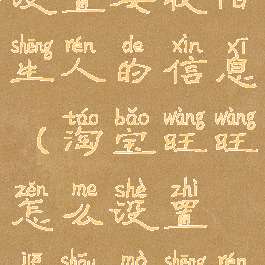 shēng rén de xìn xī
生人的信息
táo bǎo wàng wàng
（淘宝旺旺
zěn me shè zhì
怎么设置
jiē shōu mò shēng rén